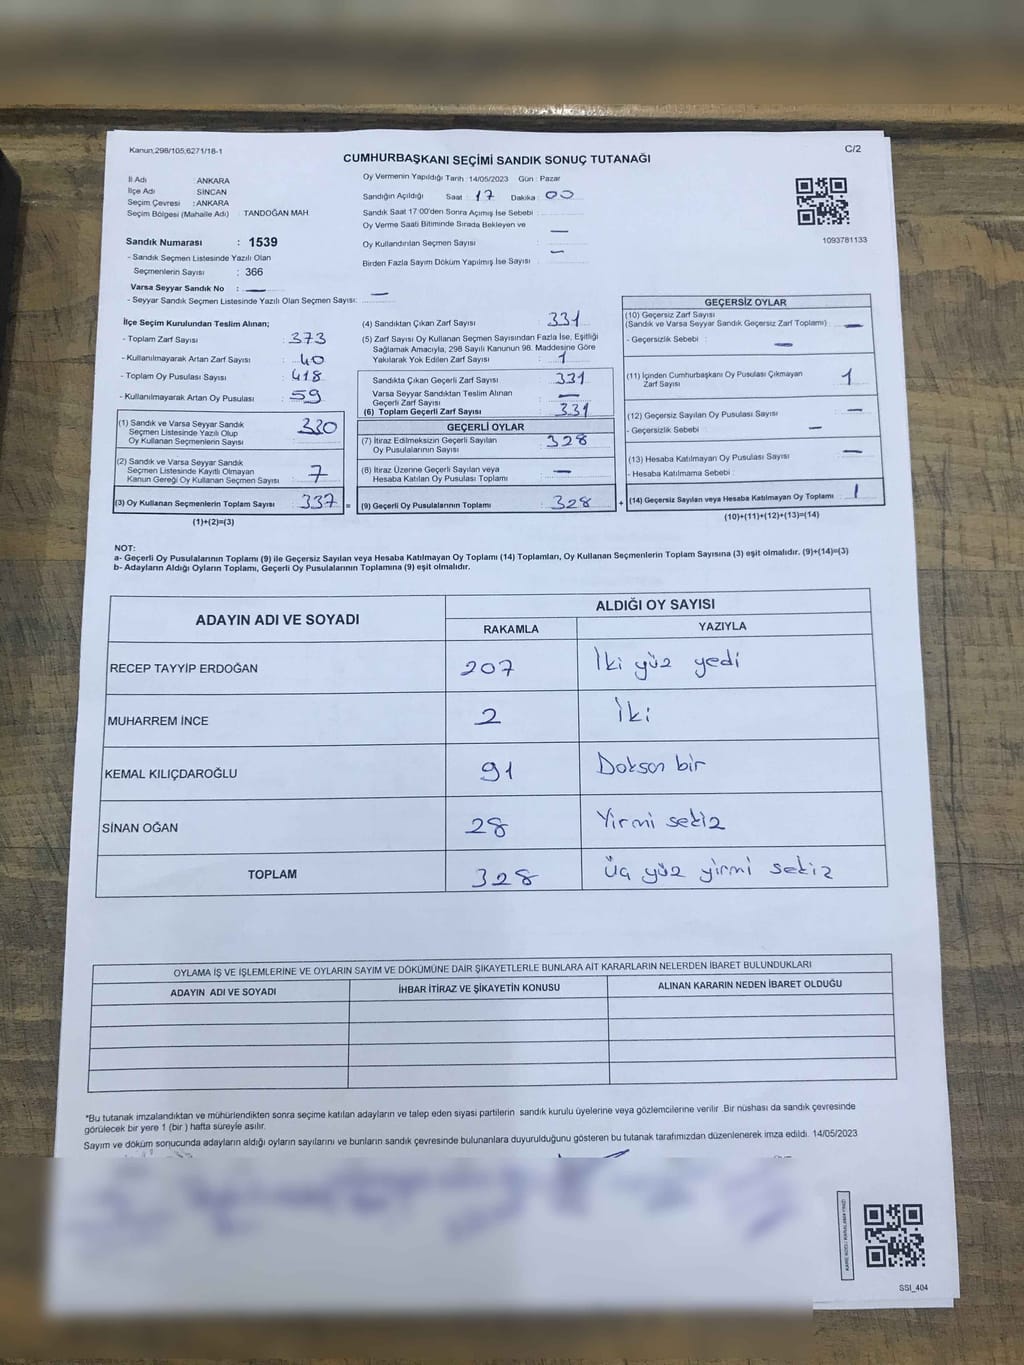 Kanun,298/105,6271/18-1
C/2
CUMHURBAŞKANI SEÇİMİ SANDIK SONUÇ TUTANAĞI
İl Adı : ANKARA
İlçe Adı : SİNCAN
Seçim Çevresi : ANKARA
Seçim Bölgesi (Mahalle Adı) : TANDOĞAN MAH
Sandık Numarası : 1539
- Sandık Seçmen Listesinde Yazılı Olan
Seçmenlerin Sayısı : 366
Varsa Seyyar Sandık No : —
- Seyyar Sandık Seçmen Listesinde Yazılı Olan Seçmen Sayısı: —
Oy Vermenin Yapıldığı Tarih : 14/05/2023 Gün : Pazar
Sandığın Açıldığı Saat : 17 Dakika : 00
Sandık Saat 17:00'den Sonra Açımış İse Sebebi :
Oy Verme Saati Bitiminde Sırada Bekleyen ve
Oy Kullandırılan Seçmen Sayısı : —
Birden Fazla Sayım Döküm Yapılmış İse Sayısı : —
1093781133
İlçe Seçim Kurulundan Teslim Alınan;
- Toplam Zarf Sayısı : 373
- Kullanılmayarak Artan Zarf Sayısı : 40
- Toplam Oy Pusulası Sayısı : 418
- Kullanılmayarak Artan Oy Pusulası : 59
(1) Sandık ve Varsa Seyyar Sandık
Seçmen Listesinde Yazılı Olup
Oy Kullanan Seçmenlerin Sayısı : 330
(2) Sandık ve Varsa Seyyar Sandık
Seçmen Listesinde Kayıtlı Olmayan
Kanun Gereği Oy Kullanan Seçmen Sayısı : 7
(3) Oy Kullanan Seçmenlerin Toplam Sayısı : 337 =
(1)+(2)=(3)
(4) Sandıktan Çıkan Zarf Sayısı : 331
(5) Zarf Sayısı Oy Kullanan Seçmen Sayısından Fazla İse, Eşitliği
Sağlamak Amacıyla, 298 Sayılı Kanunun 98. Maddesine Göre
Yakılarak Yok Edilen Zarf Sayısı : 1
Sandıkta Çıkan Geçerli Zarf Sayısı : 331
Varsa Seyyar Sandıktan Teslim Alınan
Geçerli Zarf Sayısı : —
(6) Toplam Geçerli Zarf Sayısı : 331
GEÇERLİ OYLAR
(7) İtiraz Edilmeksizin Geçerli Sayılan
Oy Pusulalarının Sayısı : 328
(8) İtiraz Üzerine Geçerli Sayılan veya
Hesaba Katılan Oy Pusulası Toplamı : —
(9) Geçerli Oy Pusulalarının Toplamı : 328 +
GEÇERSİZ OYLAR
(10) Geçersiz Zarf Sayısı
(Sandık ve Varsa Seyyar Sandık Geçersiz Zarf Toplamı) : —
- Geçersizlik Sebebi : —
(11) İçinden Cumhurbaşkanı Oy Pusulası Çıkmayan
Zarf Sayısı : 1
(12) Geçersiz Sayılan Oy Pusulası Sayısı : —
- Geçersizlik Sebebi : —
(13) Hesaba Katılmayan Oy Pusulası Sayısı : —
- Hesaba Katılmama Sebebi :
(14) Geçersiz Sayılan veya Hesaba Katılmayan Oy Toplamı : 1
(10)+(11)+(12)+(13)=(14)
NOT:
a- Geçerli Oy Pusulalarının Toplamı (9) ile Geçersiz Sayılan veya Hesaba Katılmayan Oy Toplamı (14) Toplamları, Oy Kullanan Seçmenlerin Toplam Sayısına (3) eşit olmalıdır. (9)+(14)=(3)
b- Adayların Aldığı Oyların Toplamı, Geçerli Oy Pusulalarının Toplamına (9) eşit olmalıdır.
ADAYIN ADI VE SOYADI ALDIĞI OY SAYISI
RAKAMLA YAZIYLA
RECEP TAYYİP ERDOĞAN 207 İki yüz yedi
MUHARREM İNCE 2 İki
KEMAL KILIÇDAROĞLU 91 Doksan bir
SİNAN OĞAN 28 Yirmi sekiz
TOPLAM 328 Üç yüz yirmi sekiz
OYLAMA İŞ VE İŞLEMLERİNE VE OYLARIN SAYIM VE DÖKÜMÜNE DAİR ŞİKAYETLERLE BUNLARA AİT KARARLARIN NELERDEN İBARET BULUNDUKLARI
ADAYIN ADI VE SOYADI İHBAR İTİRAZ VE ŞİKAYETİN KONUSU ALINAN KARARIN NEDEN İBARET OLDUĞU
*Bu tutanak imzalandıktan ve mühürlendikten sonra seçime katılan adayların ve talep eden siyasi partilerin sandık kurulu üyelerine veya gözlemcilerine verilir .Bir nüshası da sandık çevresinde
görülecek bir yere 1 (bir ) hafta süreyle asılır.
Sayım ve döküm sonucunda adayların aldığı oyların sayılarını ve bunların sandık çevresinde bulunanlara duyurulduğunu gösteren bu tutanak tarafımızdan düzenlenerek imza edildi. 14/05/2023
SSI_404